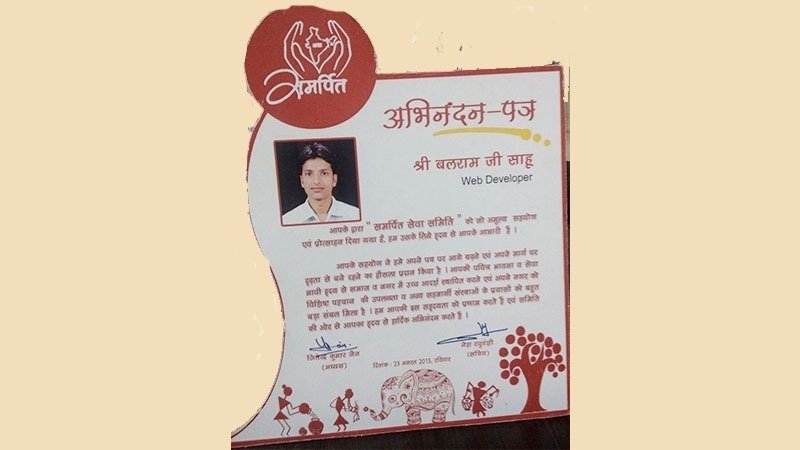 समर्पित
अभिनंदन-पत्र
श्री बलराम जी साहू
Web Developer
आपके द्वारा “ समर्पित सेवा समिति ” को जो अमूल्य सहयोग
एवं प्रोत्साहन दिया गया है, हम उसके लिये हृदय से आपके आभारी है ।
आपके सहयोग ने हमे अपने पथ पर आगे बढ़ने एवं अपने मार्ग पर
दृढ़ता से बने रहने का हौंसला प्रदान किया है । आपकी पवित्र भावना व सेवा
भावी हृदय से समाज व नगर में उच्च आदर्श स्थापित करने एवं अपने नगर को
विशिष्ट पहचान की उपलब्धता व अन्य सहमार्गी संस्थाओं के प्रयासों को बहुत
बड़ा संबल मिला है । हम आपकी इस सहृदयता को प्रणाम करते है एवं समिति
की ओर से आपका हृदय से हार्दिक अभिनंदन करते है ।
जितेन्द्र कुमार जैन
(अध्यक्ष)
दिनांक : 23 अगस्त 2015, रविवार
नेहा रघुवंशी
(सचिव)